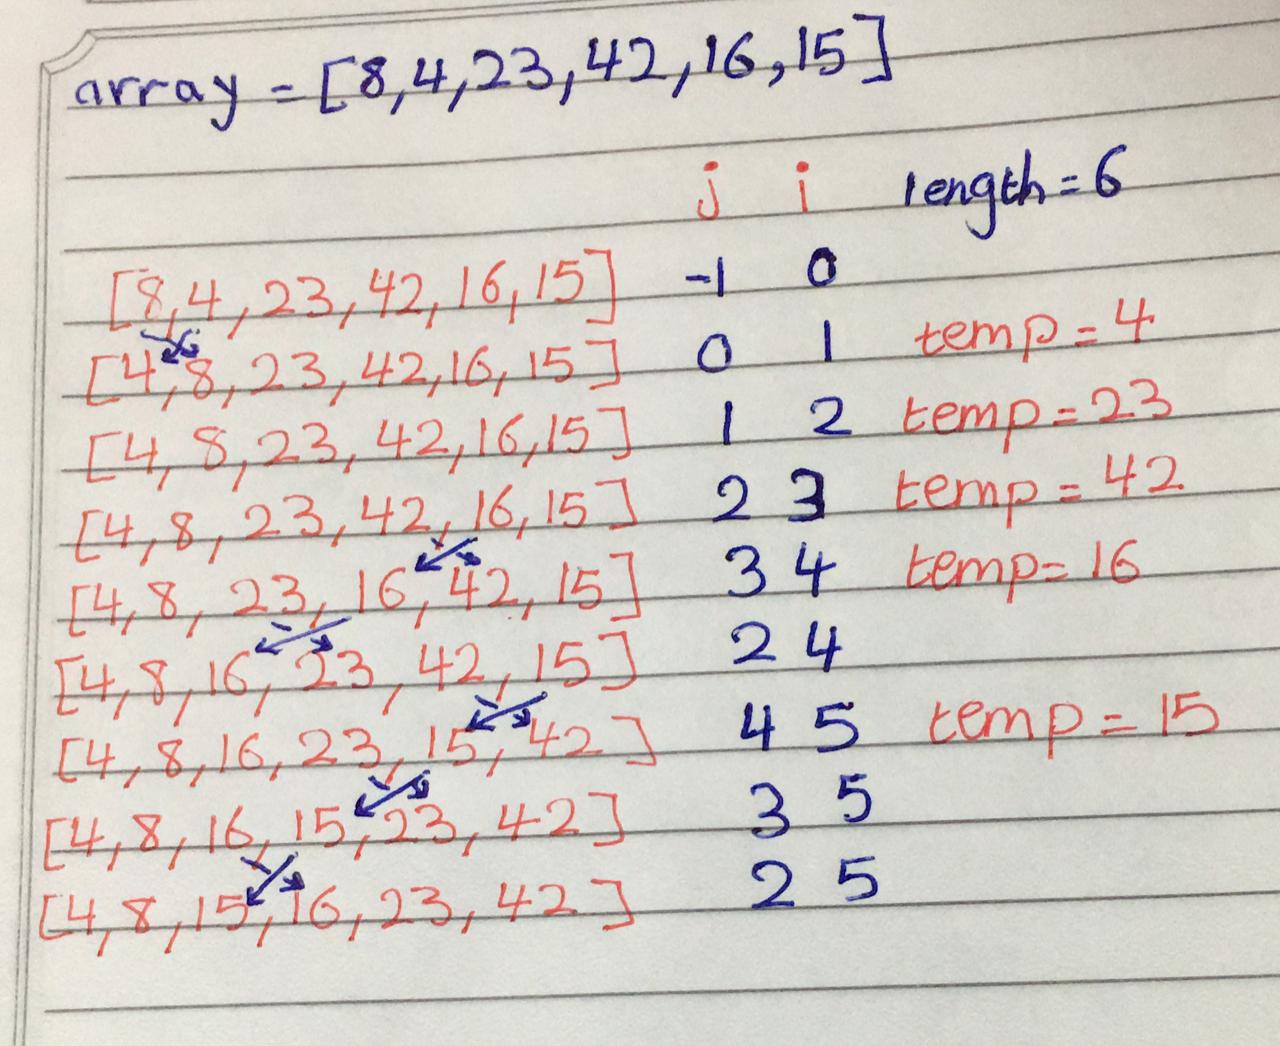 array = [8,4,23,42,16,15]
j i length = 6
[8,4,23,42,16,15] -1 0
[4,8,23,42,16,15] 0 1 temp = 4
[4,8,23,42,16,15] 1 2 temp = 23
[4,8,23,42,16,15] 2 3 temp = 42
[4,8,23,16,42,15] 3 4 temp = 16
[4,8,16,23,42,15] 2 4
[4,8,16,23,15,42] 4 5 temp = 15
[4,8,16,15,23,42] 3 5
[4,8,15,16,23,42] 2 5